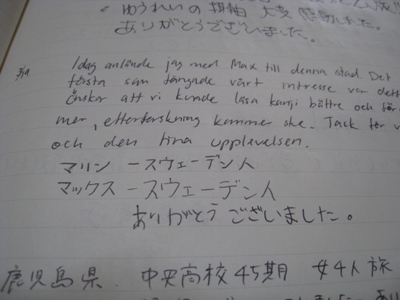 ゆうれいの掛軸 大変感動しました。
ありがとうございました。
Idag anlände jag med Max till denna stad. Det
första som fångade vårt intresse var dett
önskar att vi kunde läsa kanji bättre och för
mer, efterforskning kommer ske. Tack för v
och den fina upplevelsen.
マリン ースウェーデン人
マックス ースウェーデン人
ありがとうございました。
鹿児島県 中央高校45期 女4人旅